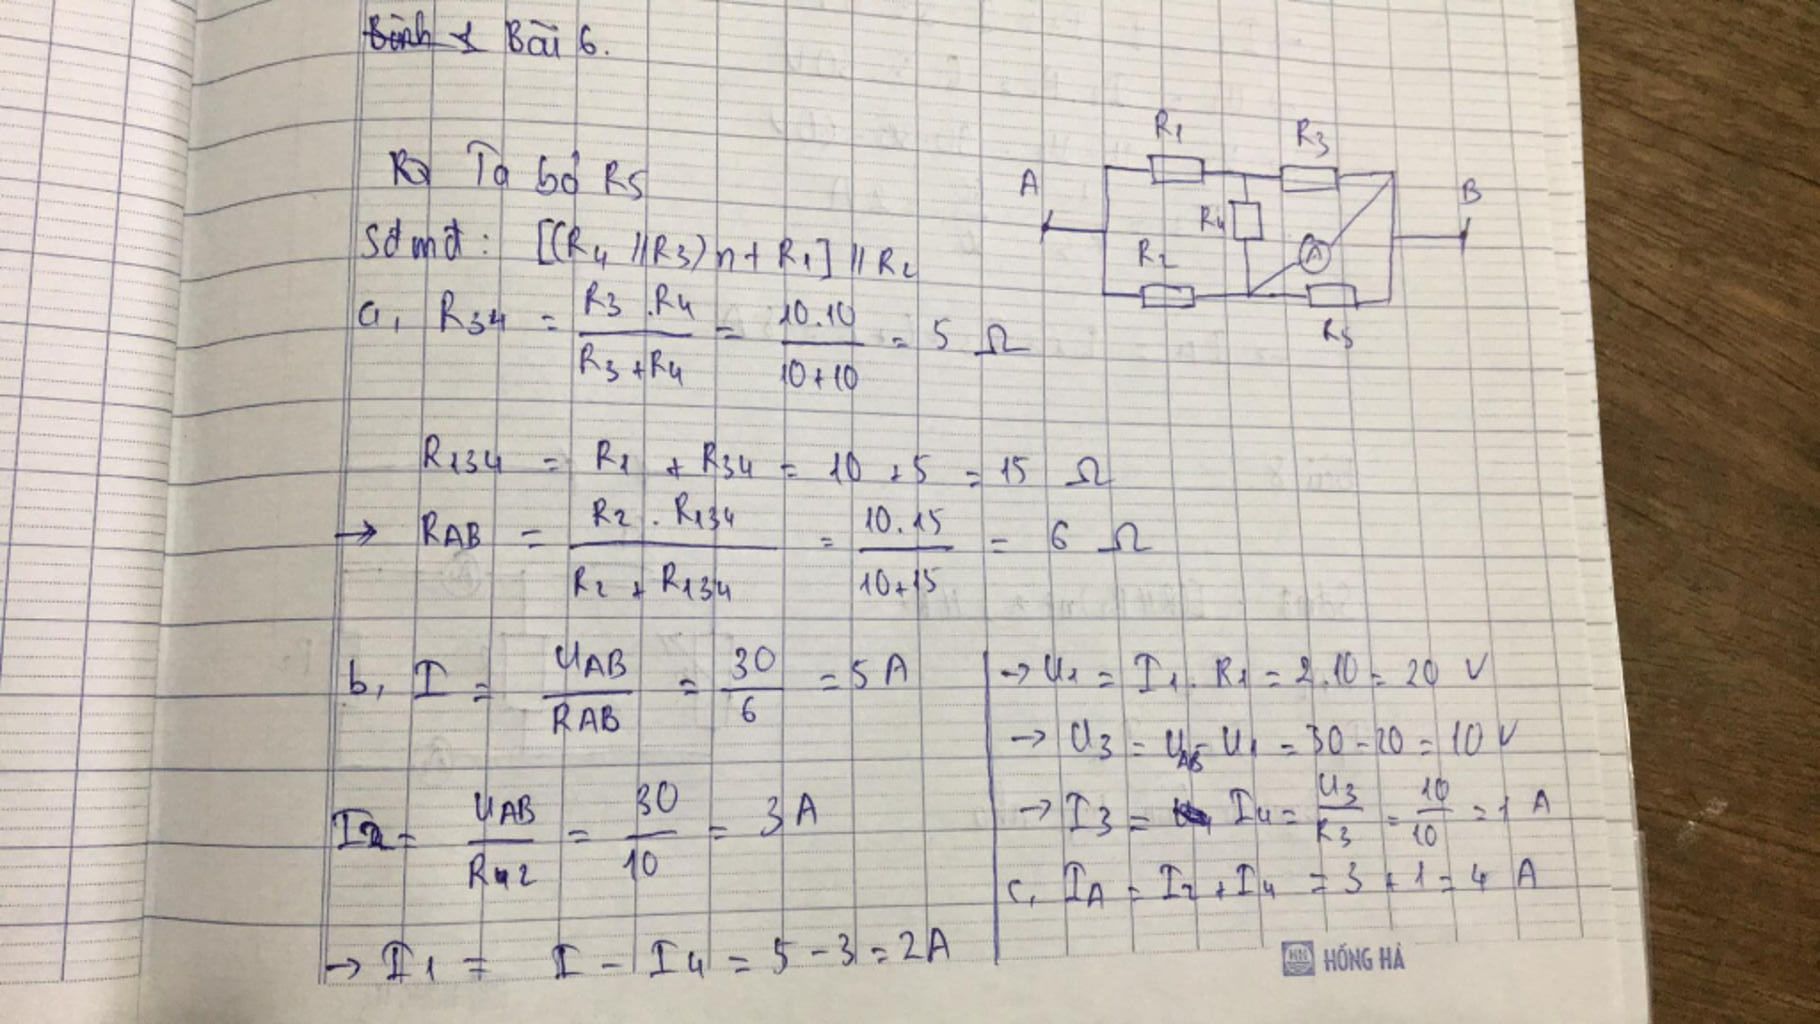 Bài 6.
Ta bỏ R5
Sđmđ : [(R4 // R3) nt R1] // R2
A
R1
R3
B
R4
A
R2
R5
a, R34 = R3 . R4 / R3 + R4 = 10.10 / 10+10 = 5 Ω
R134 = R1 + R34 = 10 + 5 = 15 Ω
→ RAB = R2 . R134 / R2 + R134 = 10.15 / 10+15 = 6 Ω
b, I = UAB / RAB = 30 / 6 = 5 A
I2 = UAB / R2 = 30 / 10 = 3 A
→ I1 = I - I4 = 5 - 3 = 2A
→ U1 = I1. R1 = 2.10 = 20 V
→ U3 = UAB - U1 = 30 - 20 = 10 V
→ I3 = I4 = U3 / R3 = 10 / 10 = 1 A
c, IA = I2 + I4 = 3 + 1 = 4 A
HH HỒNG HÀ